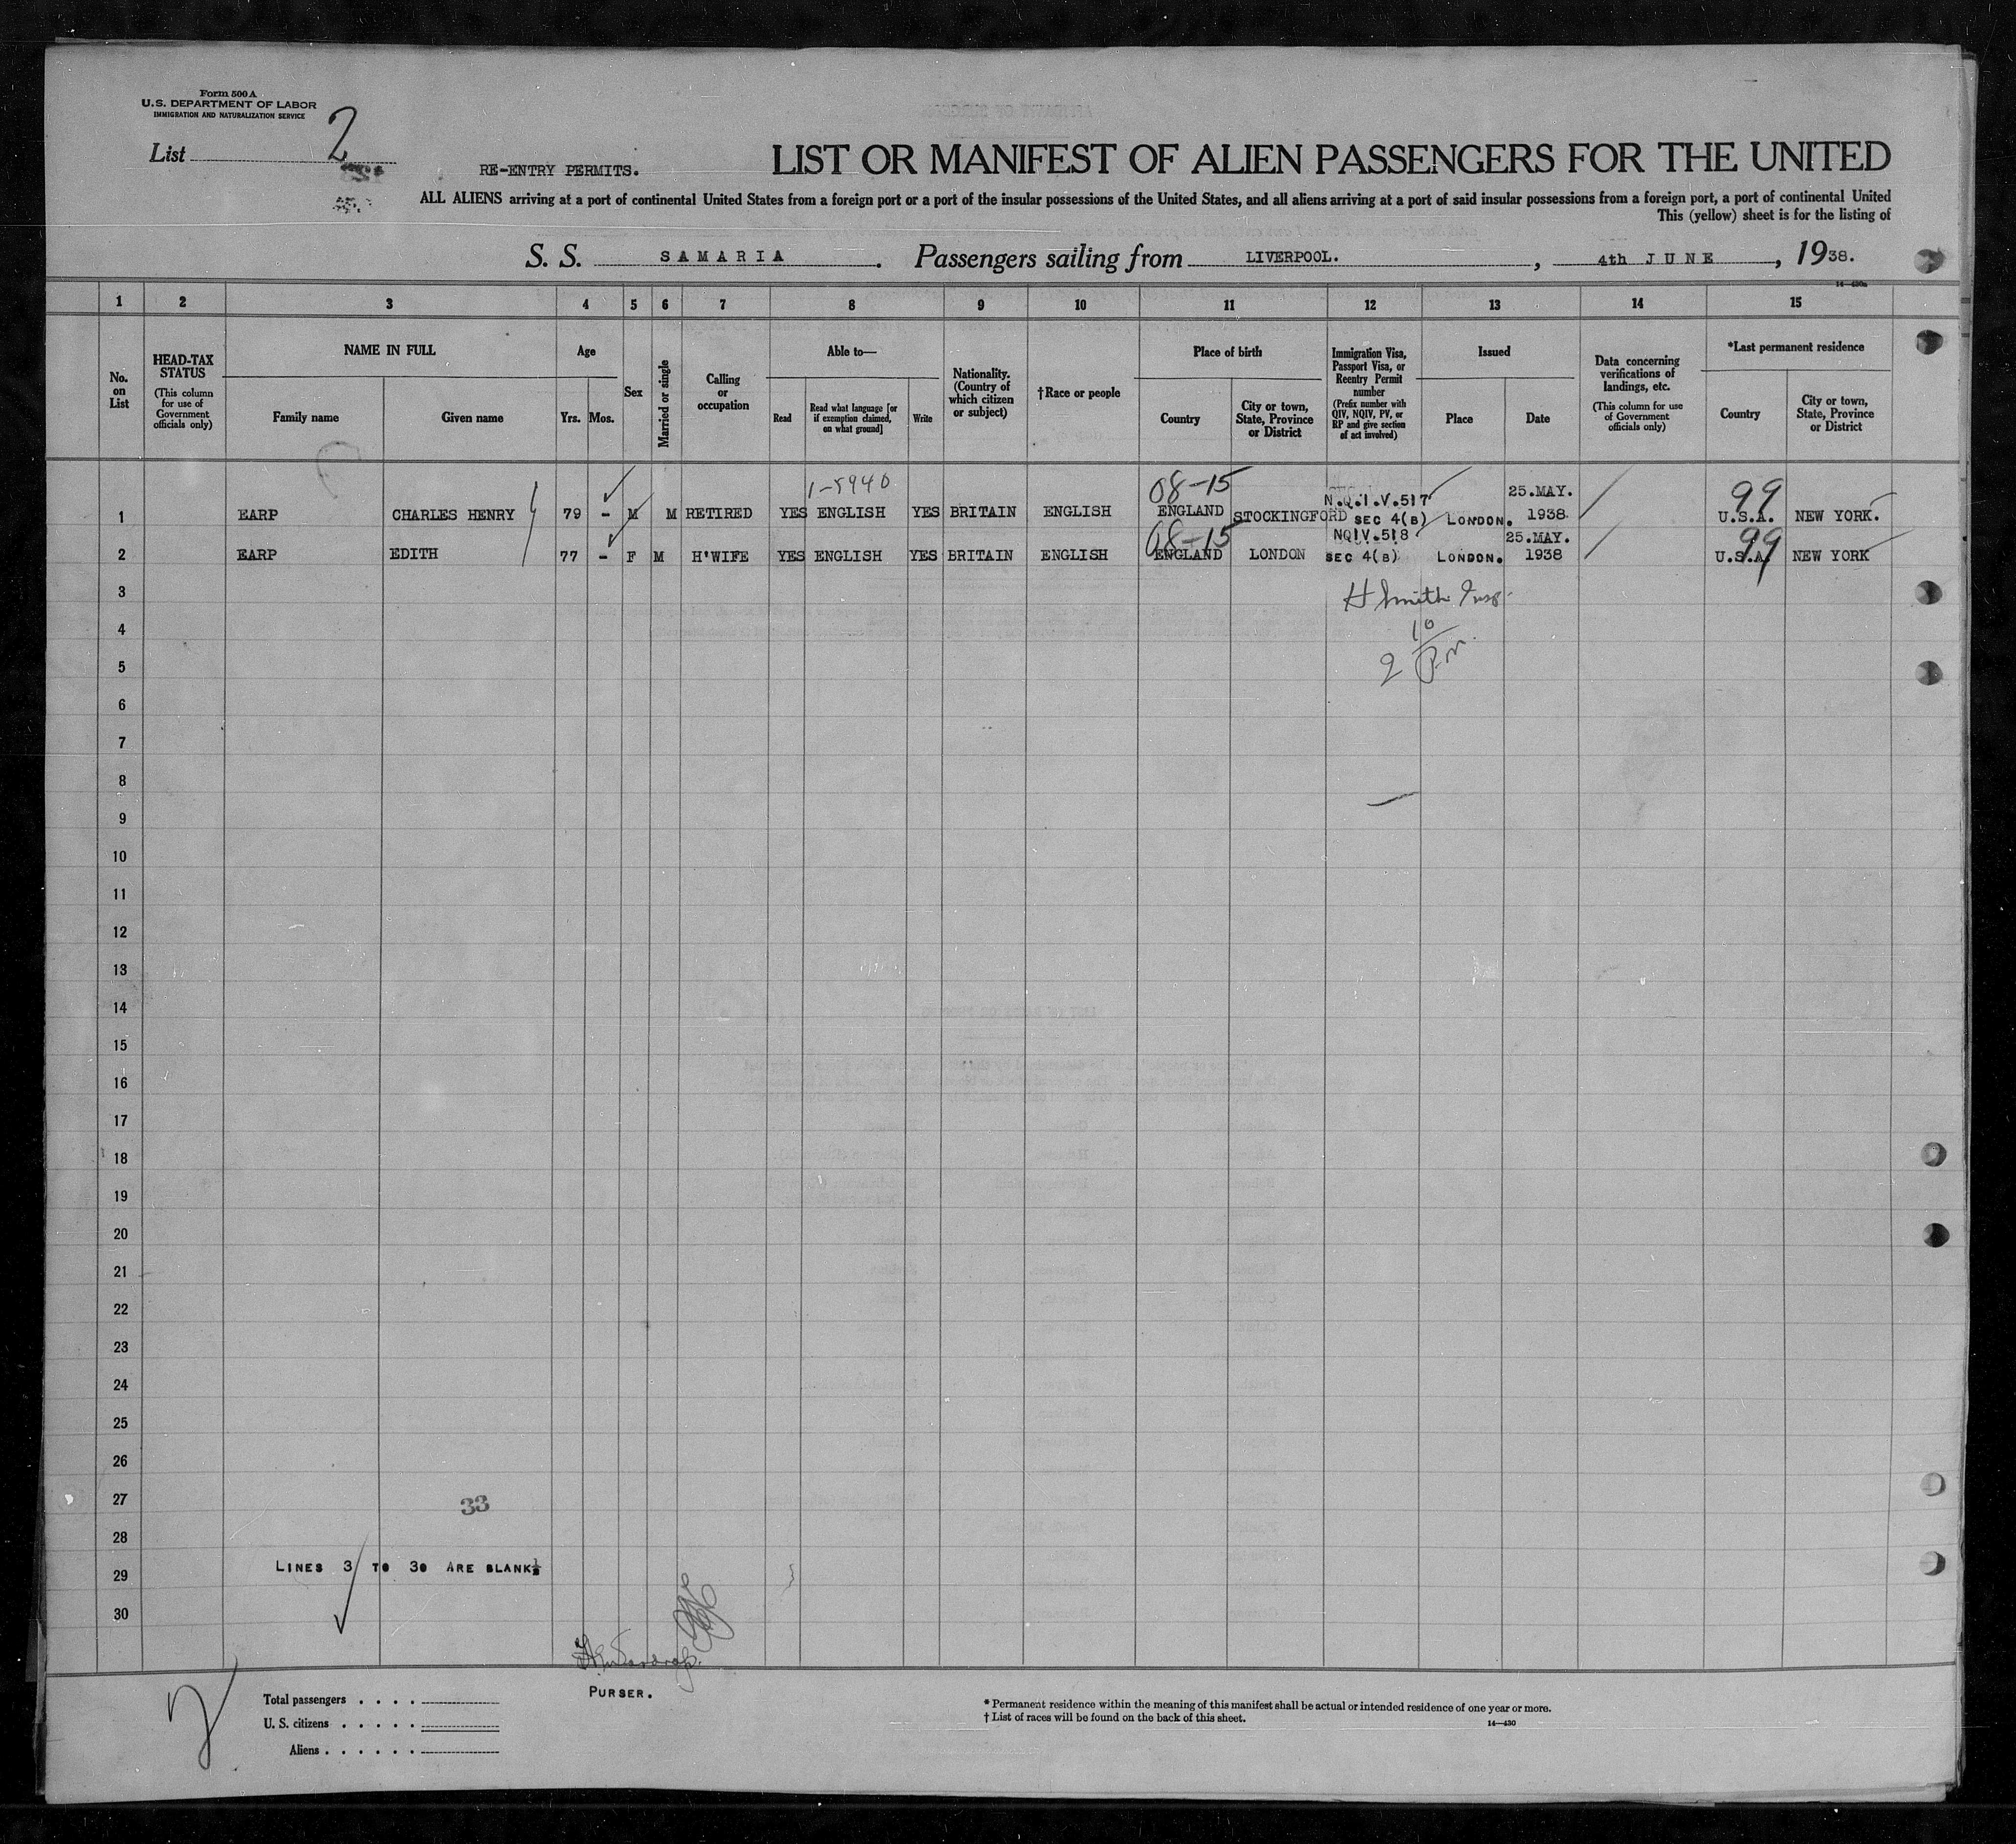 Form 500 A
U.S. DEPARTMENT OF LABOR
IMMIGRATION AND NATURALIZATION SERVICE
List 2
RE-ENTRY PERMITS.
LIST OR MANIFEST OF ALIEN PASSENGERS FOR THE UNITED
ALL ALIENS arriving at a port of continental United States from a foreign port or a port of the insular possessions of the United States, and all aliens arriving at a port of said insular possessions from a foreign port, a port of continental United
This (yellow) sheet is for the listing of
S. S. SAMARIA. Passengers sailing from LIVERPOOL., 4th JUNE, 1938.
14—430a
1 2 3 4 5 6 7 8 9 10 11 12 13 14 15
No. on List
HEAD-TAX STATUS (This column for use of Government officials only)
NAME IN FULL
Family name Given name
Age
Yrs. Mos.
Sex
Married or single
Calling or occupation
Able to—
Read Read what language [or if exemption claimed, on what ground] Write
Nationality. (Country of which citizen or subject)
†Race or people
Place of birth
Country City or town, State, Province or District
Immigration Visa, Passport Visa, or Reentry Permit number (Prefix number with QIV, NQIV, PV, or RP and give section of act involved)
Issued
Place Date
Data concerning verifications of landings, etc. (This column for use of Government officials only)
*Last permanent residence
Country City or town, State, Province or District
1-5940 08-15 99
1 EARP CHARLES HENRY 79 - M M RETIRED YES ENGLISH YES BRITAIN ENGLISH ENGLAND STOCKINGFORD N.Q.I.V.517 SEC 4(B) LONDON. 25.MAY. 1938. U.S.A. NEW YORK.
08-15 99
2 EARP EDITH 77 - F M H'WIFE YES ENGLISH YES BRITAIN ENGLISH ENGLAND LONDON NQIV.518 SEC 4(B) LONDON. 25.MAY. 1938 U.S.A. NEW YORK
3 H Smith Insp.
4 10
5 2 P.M.
6
7
8
9
10
11
12
13
14
15
16
17
18
19
20
21
22
23
24
25
26
27 33
28
LINES 3 TO 30 ARE BLANK
29
30
PURSER.
2
Total passengers . . . .
U. S. citizens . . . . .
Aliens . . . . . .
* Permanent residence within the meaning of this manifest shall be actual or intended residence of one year or more.
† List of races will be found on the back of this sheet.
14—430